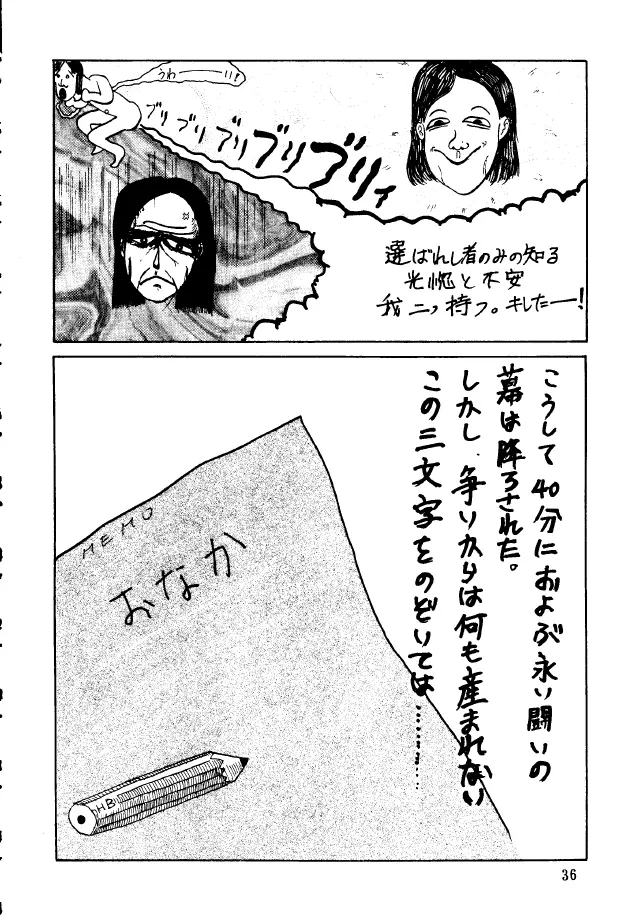 うわーい!
ブリブリブリブリブリィ
選ばれし者のみの知る
光惚と不安
我二つ持つ。キしたー!
こうして40分におよぶ永い闘いの
幕は降ろされた。
しかし、争いからは何も産まれない
この三文字をのぞいては……
MEMO
おなか
HB
36